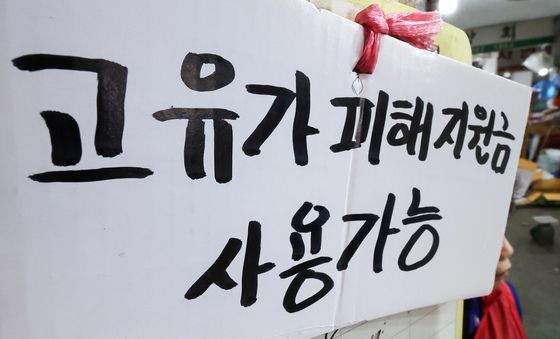 고유가 피해지원금
사용가능